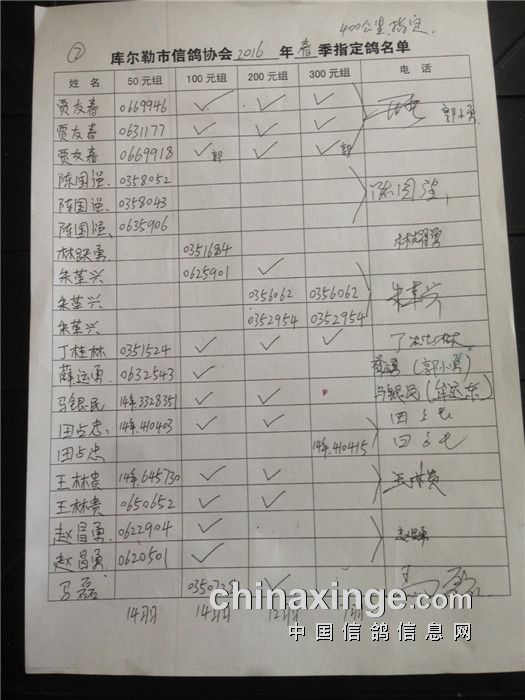 400公里指定
② 库尔勒市信鸽协会2016年春季指定鸽名单
姓 名 50元组 100元组 200元组 300元组 电 话
贾友春 0669946 ✓ ✓ ✓
贾友春 0631177 ✓ ✓ ✓ 郭小勇
贾友春 0669918 ✓郭 ✓ ✓郭
陈国强 0358052
陈国强 0358043 陈国强
陈国强 0635906
林跃勇 0351684 林耀勇
朱革兴 0625901 ✓
朱革兴 0356062 0356062 朱革兴
朱革兴 0352954 0352954
丁桂林 0351524 ✓ ✓ ✓
薛运勇 0632543 ✓ (郭小勇)
马银民 14年.3328351 ✓ ✓ 马银民
田占忠 14年.410403 ✓ ✓
田占忠 14年.410415
王林贵 14年.645730 ✓ ✓ 王林贵
王林贵 0650652 ✓ ✓
赵昌勇 0622904 ✓ 赵昌勇
赵昌勇 0620501 ✓
马磊 ✓
14羽 14羽 12羽
chinaxinge.com
中国信鸽信息网